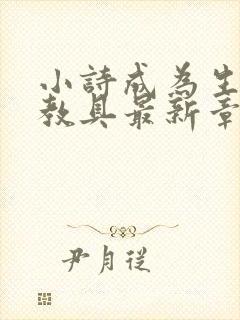 小詩成為生
教具最新章
尹月從